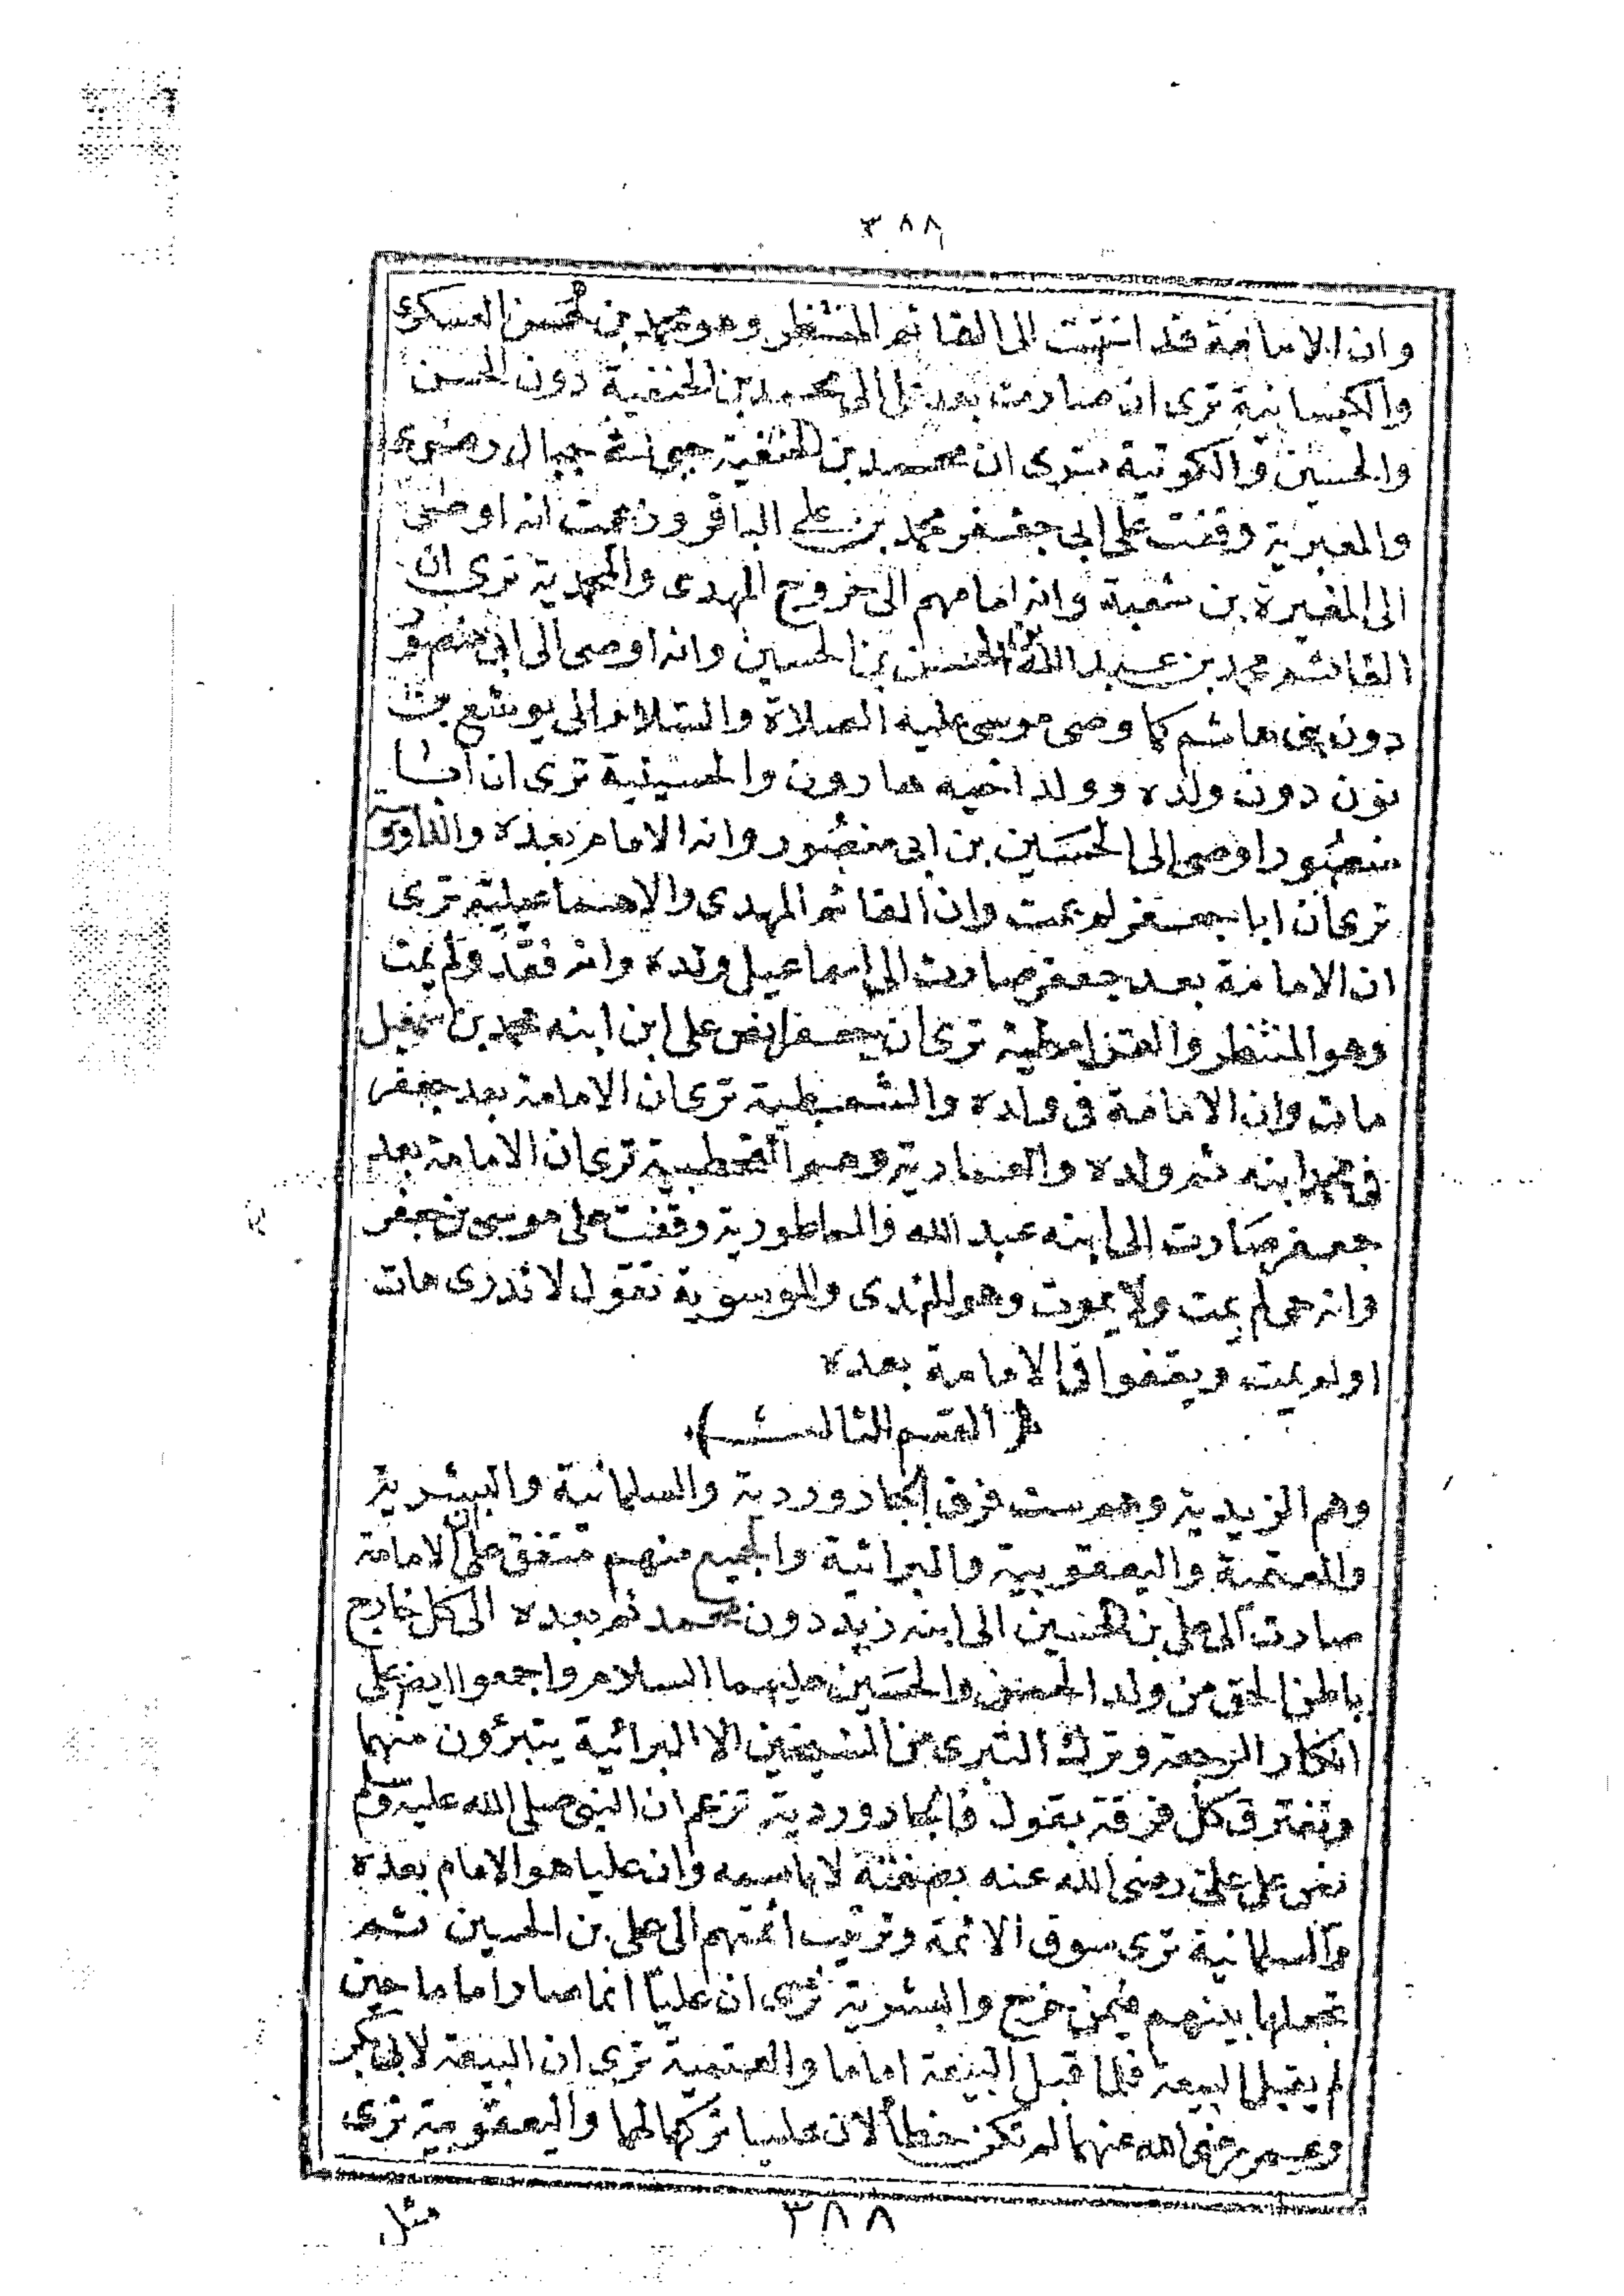 ٣٨٨
وان الامامة قد انتهت الى القائم المنتظر وهو محمد بن الحسن العسكرى
والكيسانية ترى ان صارت بعد على الى محمد بن الحنفية دون الحسن
والحسين والكوتية ترى ان محمد بن الحنفية حى انه بجبال رضوى
والمغيرية وقفت على ابى جعفر محمد بن على الباقر وزعمت انه اوصى
الى المغيرة بن شعبة وانه امامهم الى خروج المهدى والمحمدية ترى ان
القائم محمد بن عبد الله بن الحسن بن الحسين وانه اوصى الى ابى منصور
دون بنى هاشم كما وصى موسى عليه الصلاة والسلام الى يوشع بن
نون دون ولده وولد اخيه هارون والحسينية ترى ان ابا
منصور اوصى الى الحسين بن ابى منصور وانه الامام بعده
ترى ان ابا جعفر لم يمت وان القائم المهدى والاسماعيلية ترى
ان الامامة بعد جعفر صارت الى اسماعيل ولده وانه فقد ولم يمت
وهو المنتظر والقرامطية ترى ان جعفر نص على ابن ابنه محمد بن اسمعيل
مات وان الامامة فى ولده والشمطية ترى ان الامامة بعد جعفر
فى محمد ابنه ثم ولده والعمارية وهم القطحية ترى ان الامامة بعد
جعفر صارت الى ابنه عبد الله والماطورية وقفت على موسى بن جعفر
وانه حى لم يمت ولا يموت وهو المهدى والموسوية تقول لا ندرى مات
او لم يمت ويقفوا فى الامامة بعده
(القسم الثالث)
وهم الزيدية وهم ست فرق الجارودية والسلمانية والبشرية
والعتمية واليعقوبية والبرائية والجميع منهم متفق على ان الامامة
صارت الى على بن الحسين الى ابنه زيد دون محمد ثم بعده الى كل خارج
باطن الحق من ولد الحسن والحسين عليهما السلام واجمعوا ايضا على
انكار الرجعة وترك التبرى من الشيخين الا البرائية يتبرؤن منهما
وتفترق كل فرقة بقول فالجارودية تزعم ان النبى صلى الله عليه وسلم
نص على على رضى الله عنه بصفته لا باسمه وان عليا هو الامام بعده
والسلمانية ترى سوق الائمة وترتيب ائمتهم الى على بن الحسين ثم
تجعلها بينهم فيمن خرج والبشرية ترى ان عليا انما صار اماما حين
لم يقبل البيعة فلما قبل البيعة اماما والعتمية ترى ان البيعة لابى بكر
وعمر رضى الله عنهما لم تكن خطأ لان عليا تركها لهما واليعقوبية ترى
٣٨٨
مثل